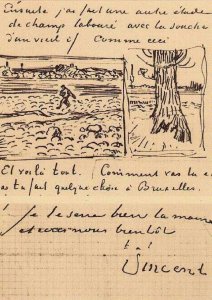 Ensuite j'ai fait une autre étude
de champ labouré avec la souche
d'un vieil if Comme ceci
Et voilà tout. Comment vas tu et
as tu fait quelque chose à Bruxelles.
je te serre bien la main
et bientôt
t. à t.
Vincent